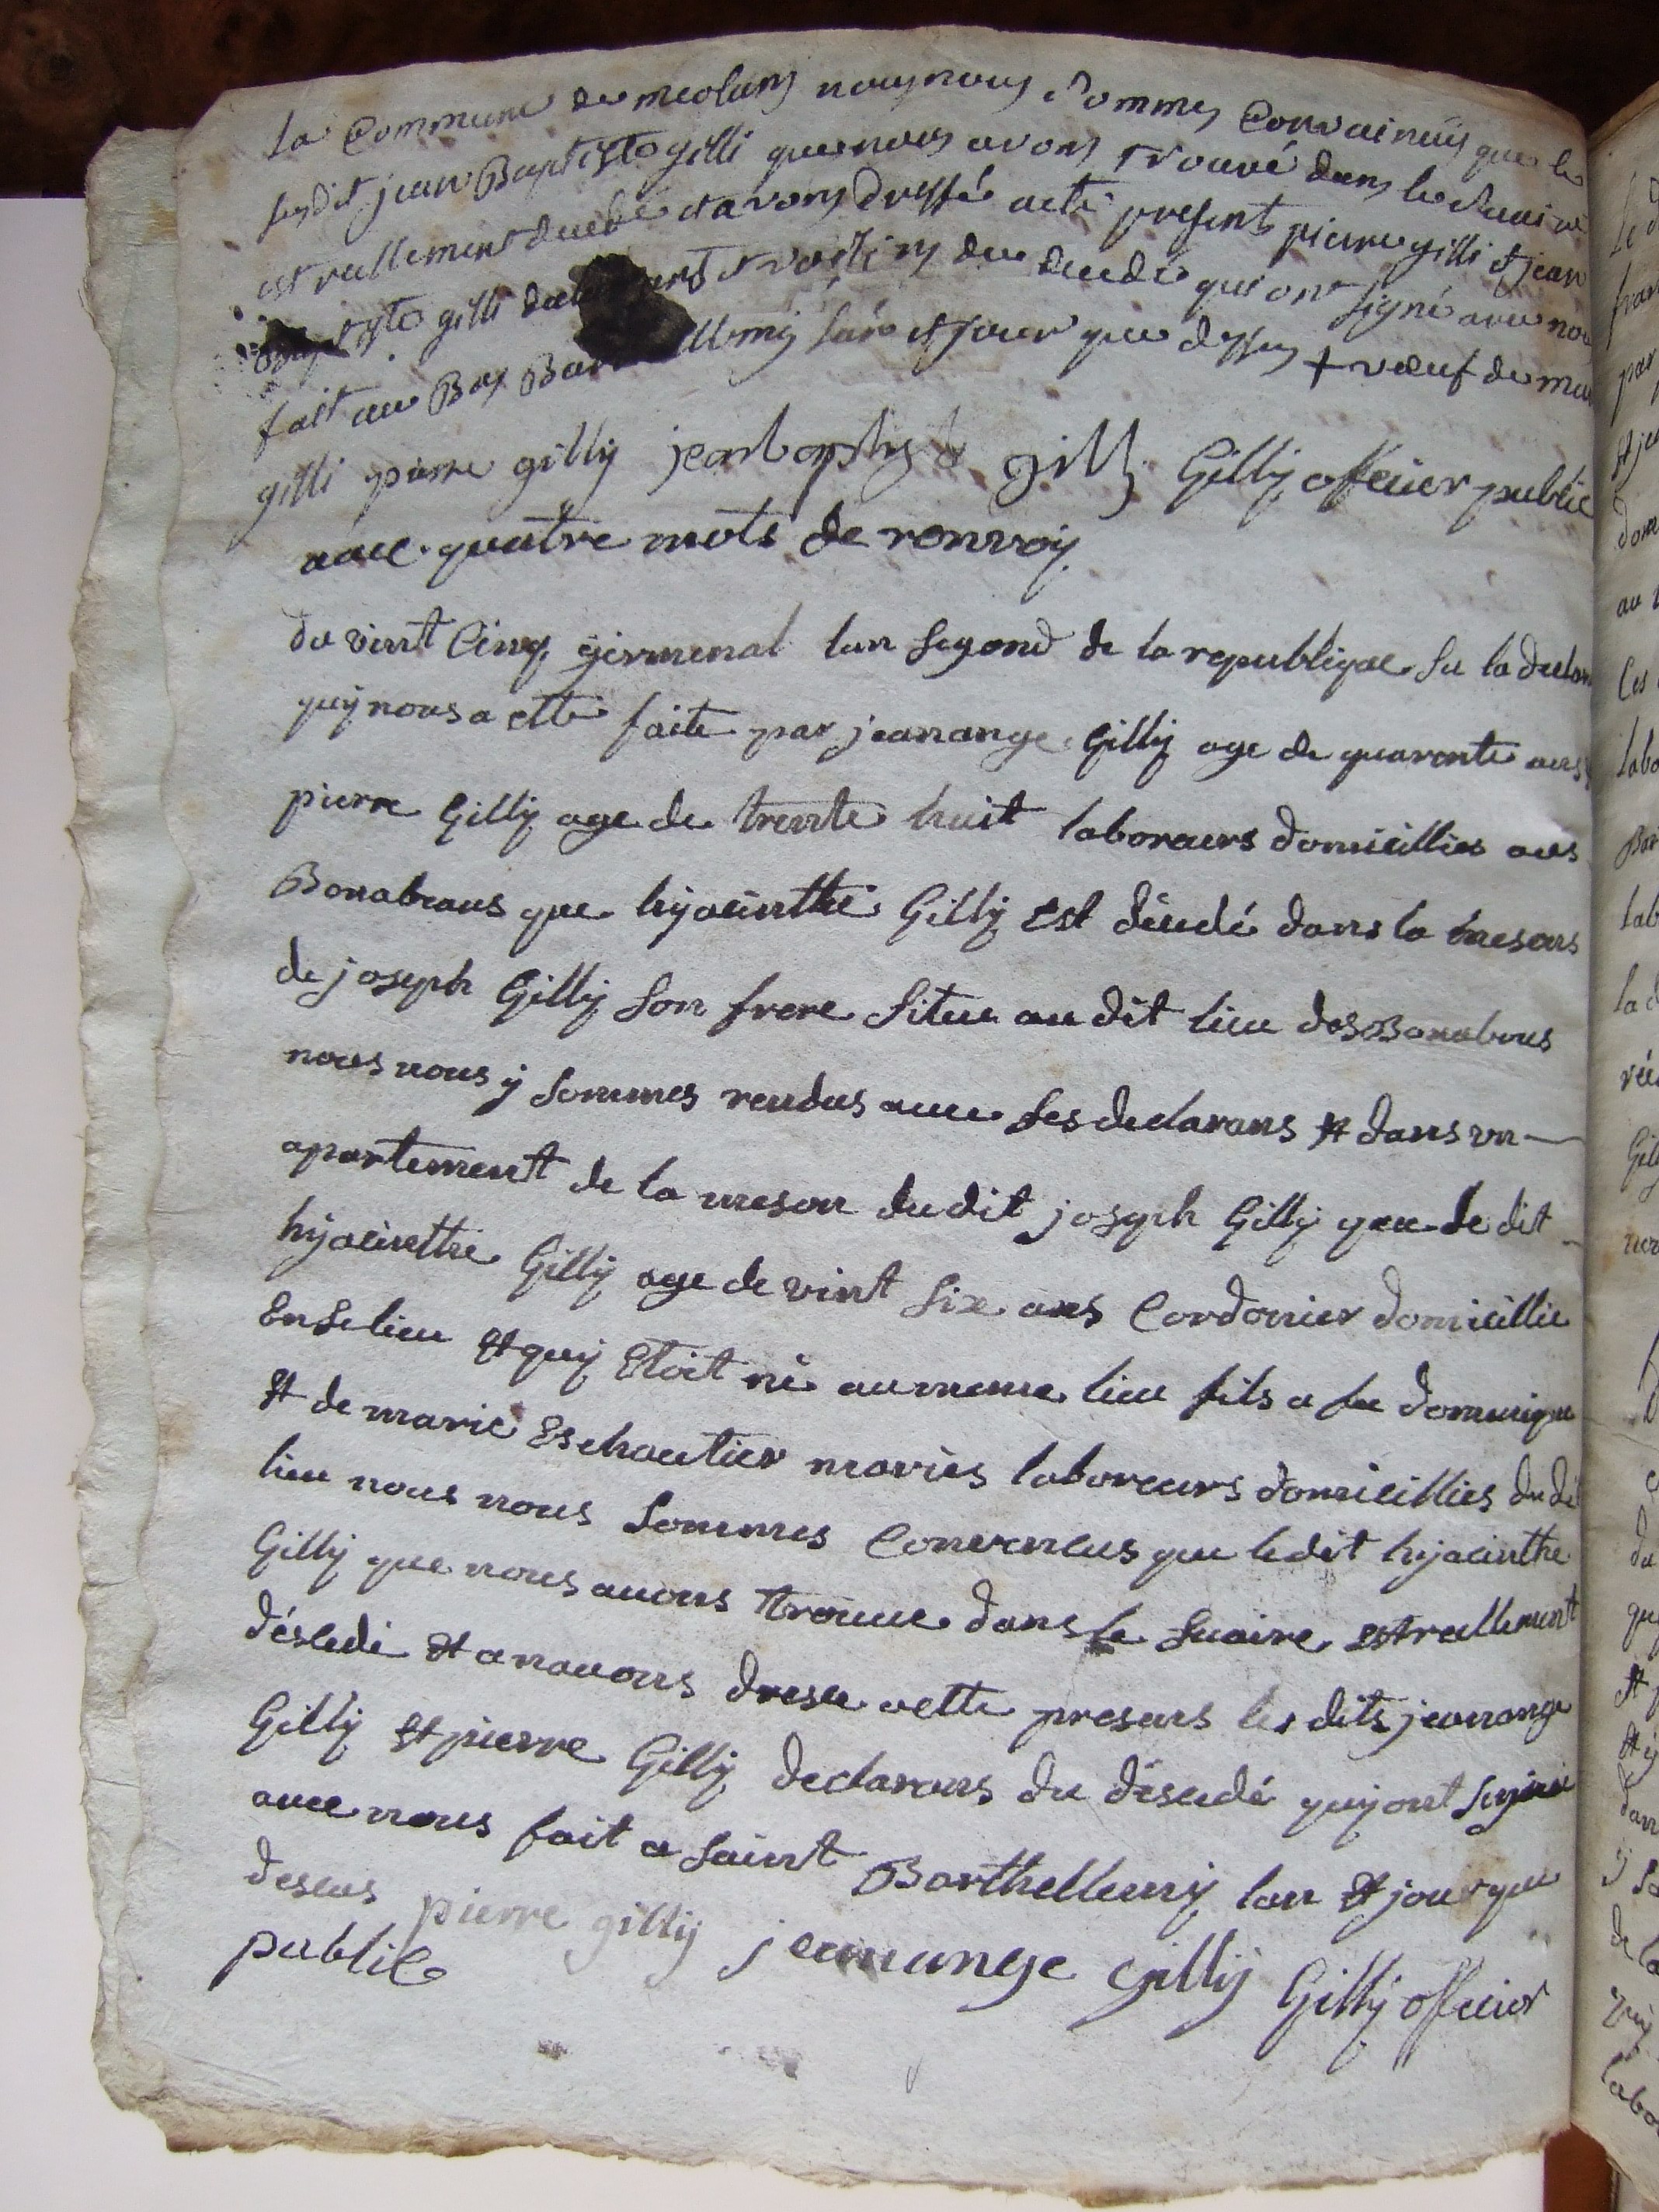 la Commune de meolans nous nous sommes Convaincus que le
susdit jean Baptiste gilli que nous avons trouvé dans le suaire
est reellement decedé et avons dressé acte present pierre gilli et jean
Baptiste gilli et voisins du decedé qui ont signé avec nous
fait au Bas Barthellemy lan et jour que dessus + veuf de
gilli pierre gilly jeanbaptiste gilly Gilly officier public
avec quatre mots de renvoy
du vint Cinq germenal lan segond de la republique su la
quy nous a etté faite par jeanange Gilly age de quarente ans
pierre Gilly age de trente huit laboreurs domicillies aus
Bonabaus que hyacinthe Gilly est décedé dans la meson
de joseph Gilly son frere situe au dit lieu des Bonabous
nous nous y sommes rendus avec les declarans et dans un
apartement de la meson dudit joseph Gilly que le dit
hyacinthe Gilly age de vint six ans Cordonier domicillie
en se lieu et quy etoit né au meme lieu fils a fu domenique
et de marie Eschautier maries laboreurs domicillies du dit
lieu nous nous sommes Convencus que ledit hyacinthe
Gilly que nous avons trouve dans le suaire est reellement
désedé et anavons dresse aette presans les dits jeanange
Gilly et pierre Gilly declarans du désedé quy ont signe
avec nous fait a saint Barthellemy lan et jour que
desus pierre gilly jeanange Gilly Gilly officier
public